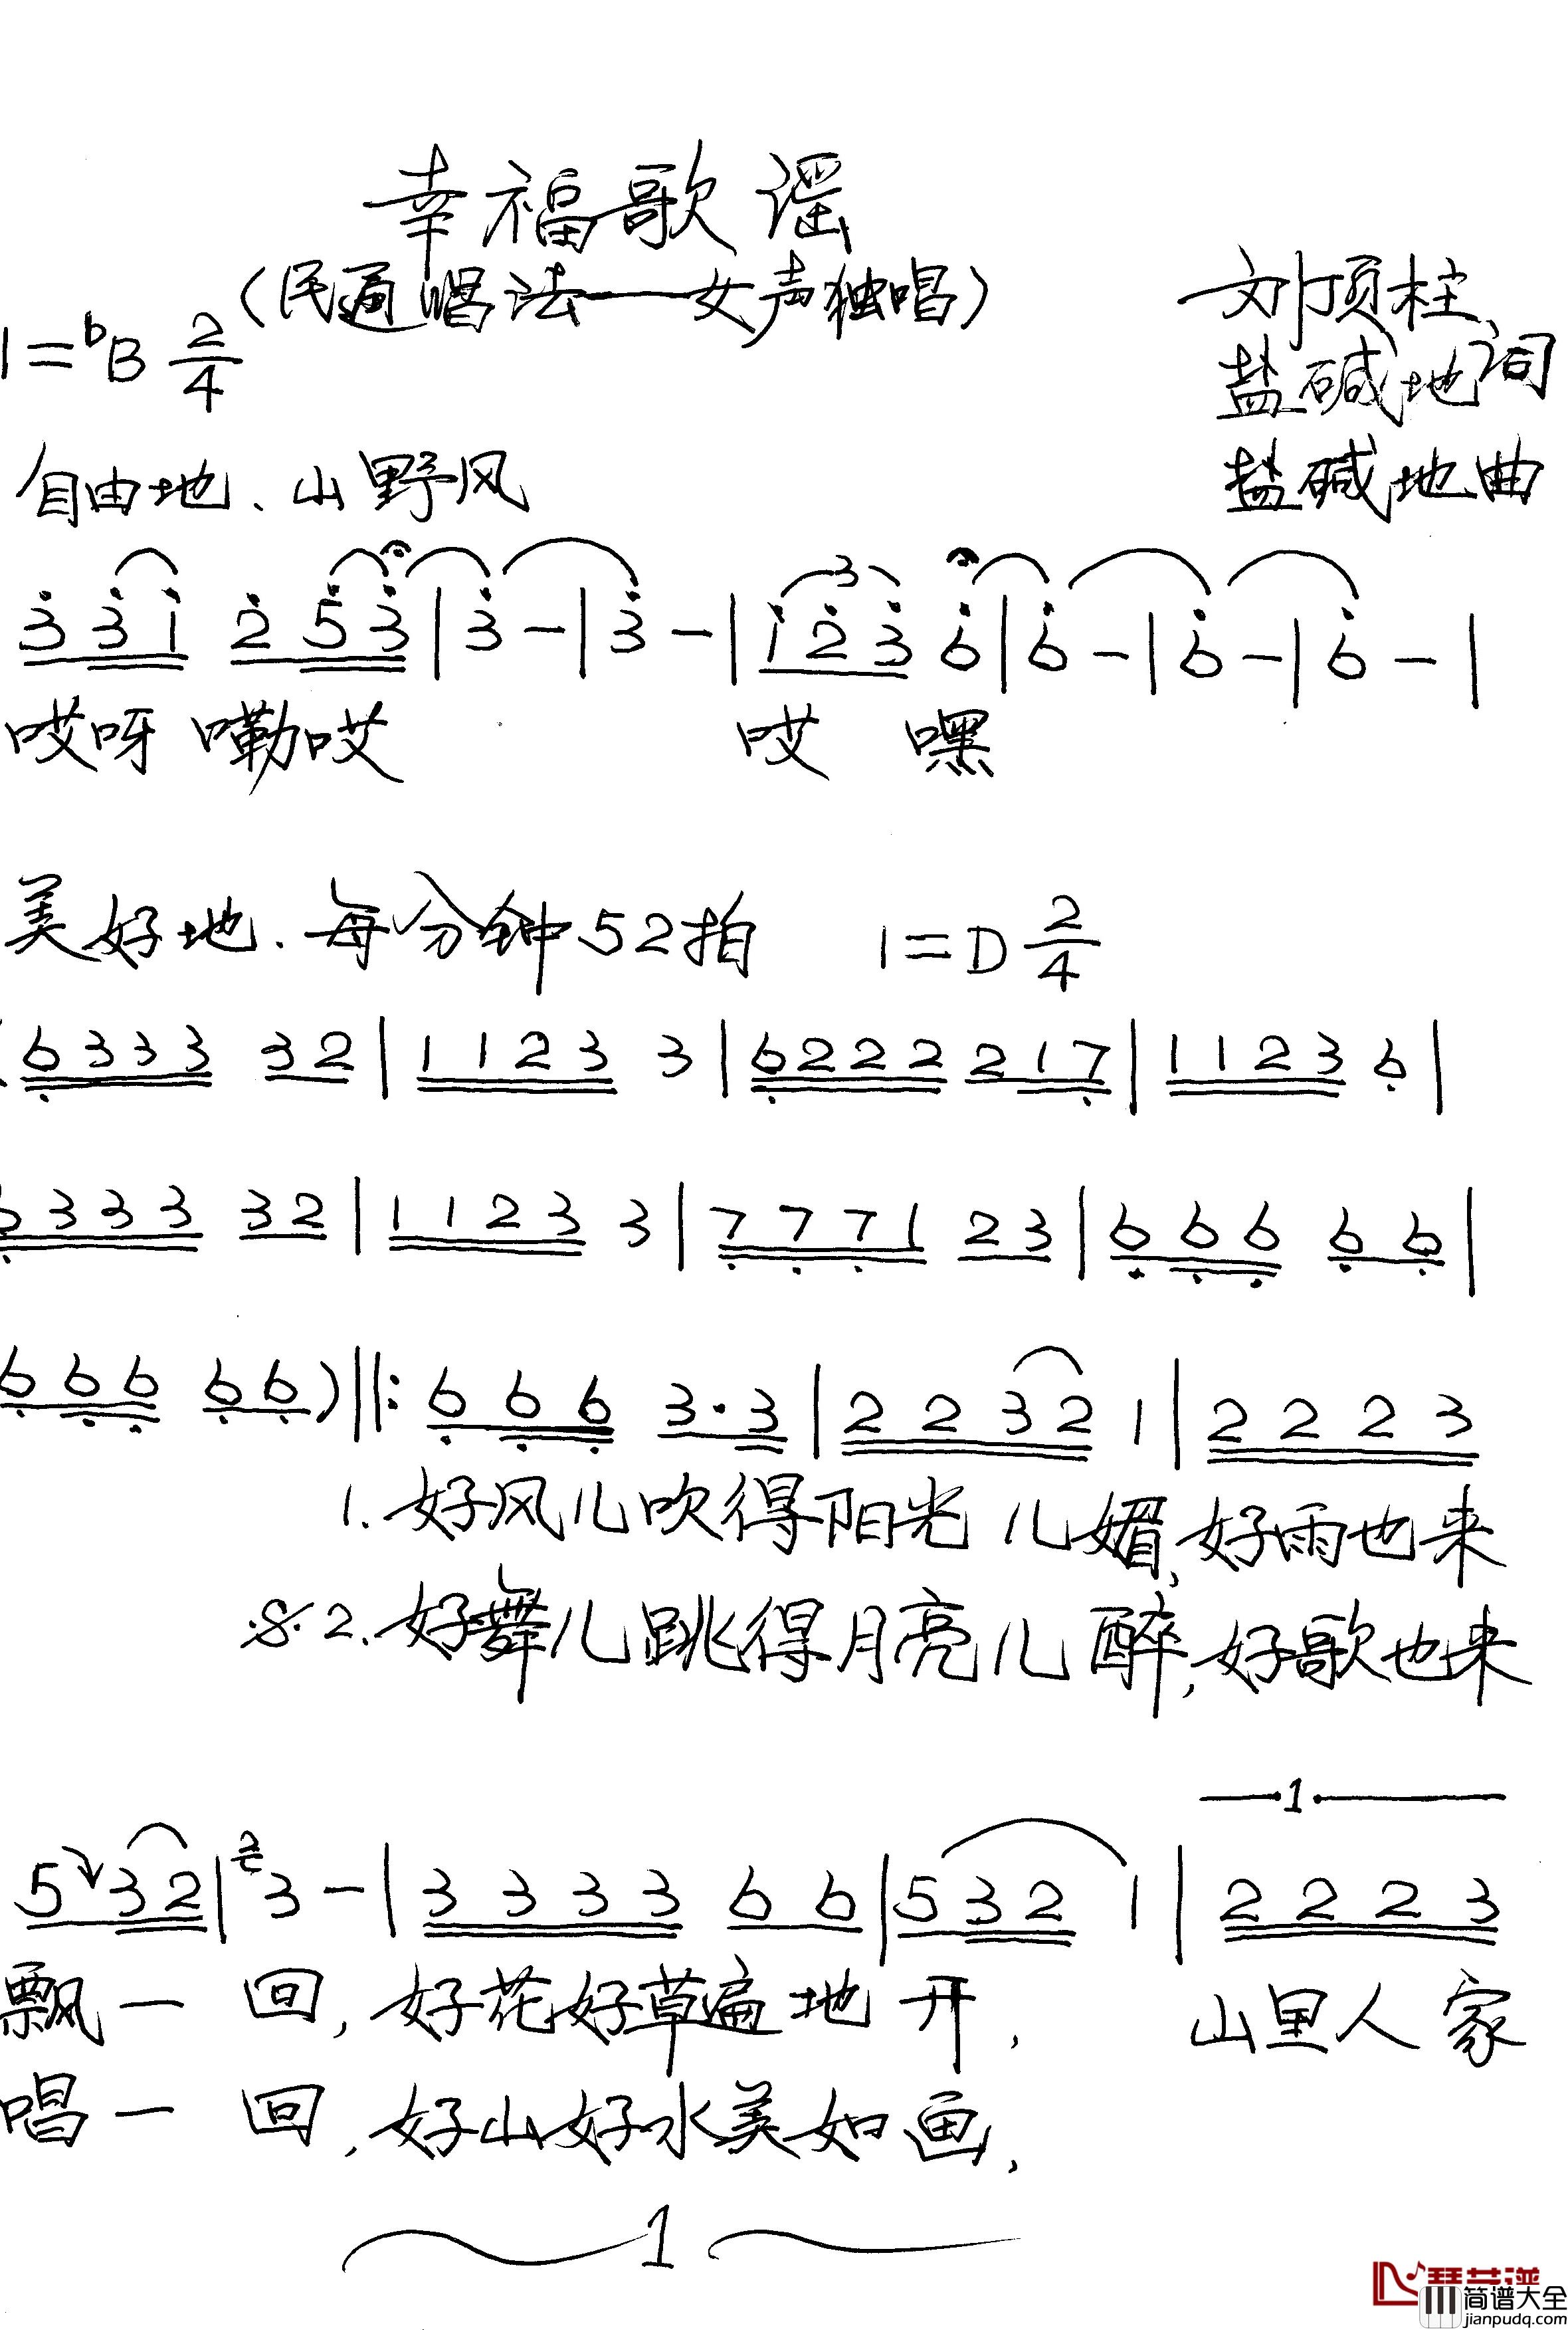 幸福歌谣
(民通唱法——女声独唱)
刘顶柱、
盐碱地词
盐碱地曲
1=bB 2/4
自由地、山野风
3 3 1 2 5 3 | 3 - | 3 - | 1 2 3 6 | 6 - | 6 - | 6 - |
哎呀 嘞哎 哎 嘿
美好地、每分钟52拍 1=D 2/4
(6 3 3 3 3 2 | 1 1 2 3 3 | 6 2 2 2 2 1 7 | 1 1 2 3 6 |
6 3 3 3 3 2 | 1 1 2 3 3 | 7 7 7 1 2 3 | 6 6 6 6 6 |
6 6 6 6 6 ) ‖: 6 6 6 3 · 3 | 2 2 3 2 1 | 2 2 2 3
1. 好风儿吹得阳光儿媚,好雨也来
𝄋 2. 好舞儿跳得月亮儿醉,好歌也来
1
5 3 2 | 2 3 - | 3 3 3 3 6 6 | 5 3 2 1 | 2 2 2 3
飘一回,好花好草遍地开, 山里人家
唱一回,好山好水美如画,
1
琴艺谱
简谱大全
jianpudq.com